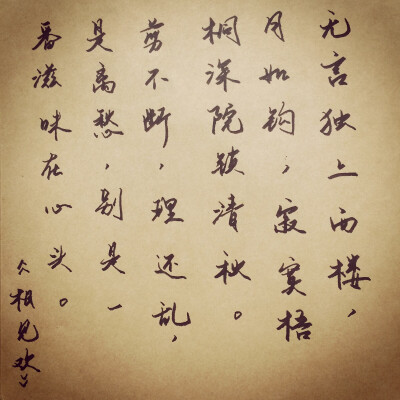 无言独上西楼，
月如钩，寂寞梧
桐深院锁清秋。
剪不断，理还乱，
是离愁，别是一
番滋味在心头。
《相见欢》